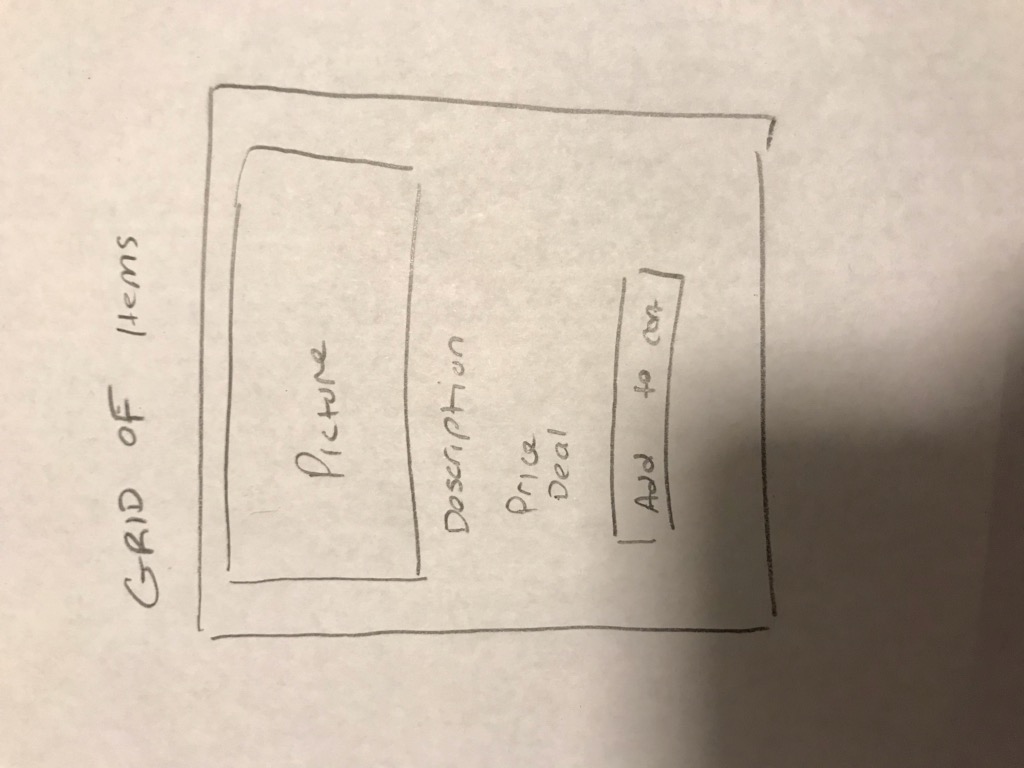 GRID OF Items
Picture
Description
Price
Deal
Add to cart